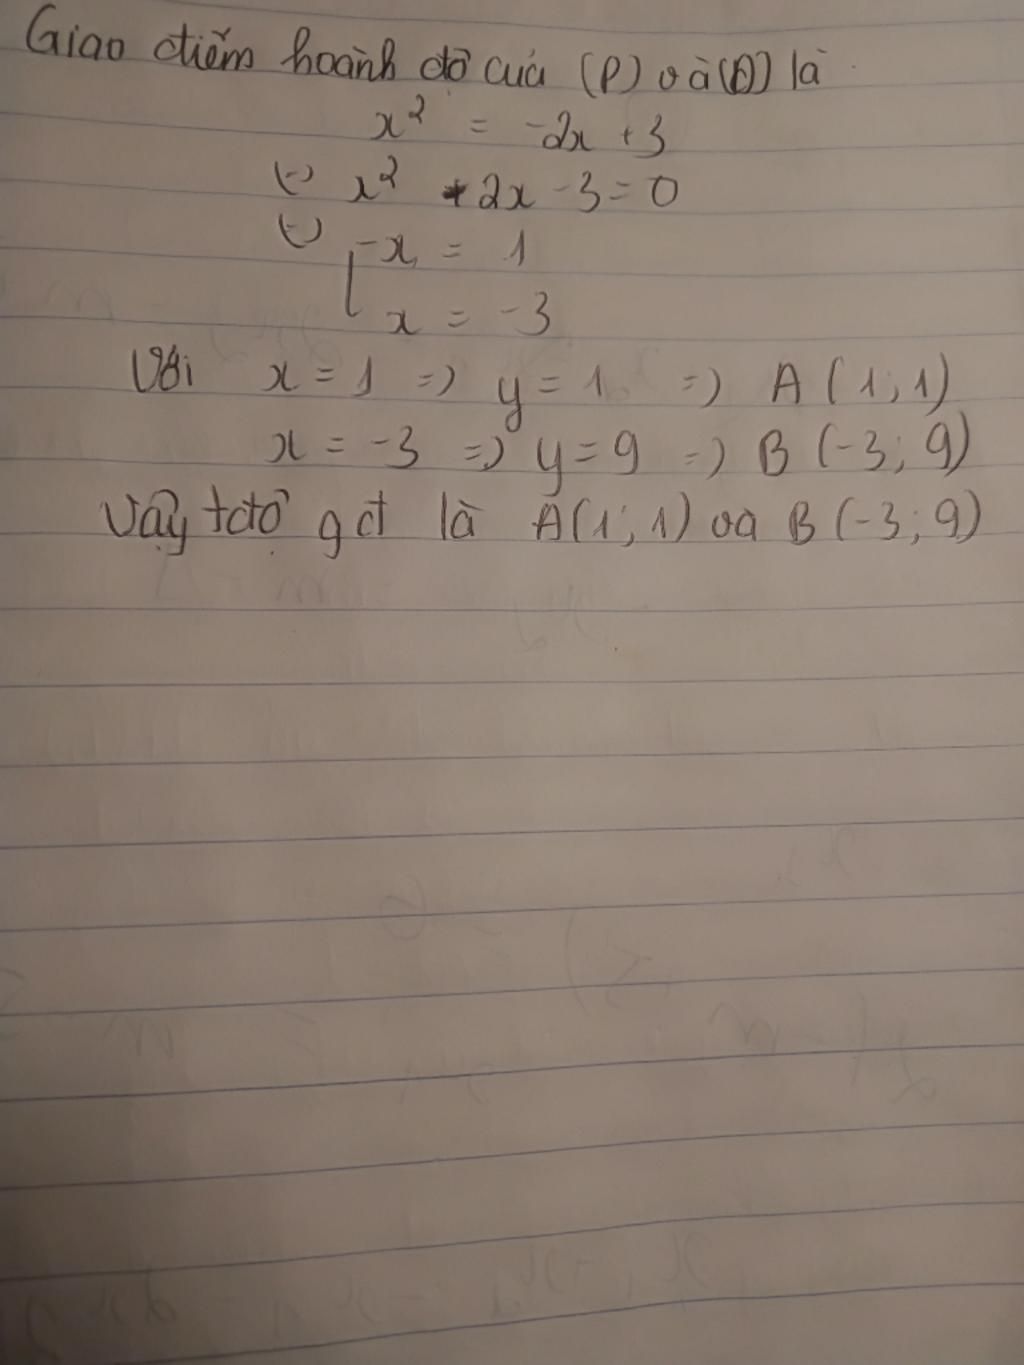 Giao điểm hoành độ của (P) và (D) là
x² = -2x + 3
(-) x² + 2x - 3 = 0
(-) [ x = 1
x = -3
Với x = 1 => y = 1 => A (1; 1)
x = -3 => y = 9 => B (-3; 9)
Vậy tđộ gđ là A(1; 1) và B (-3; 9)